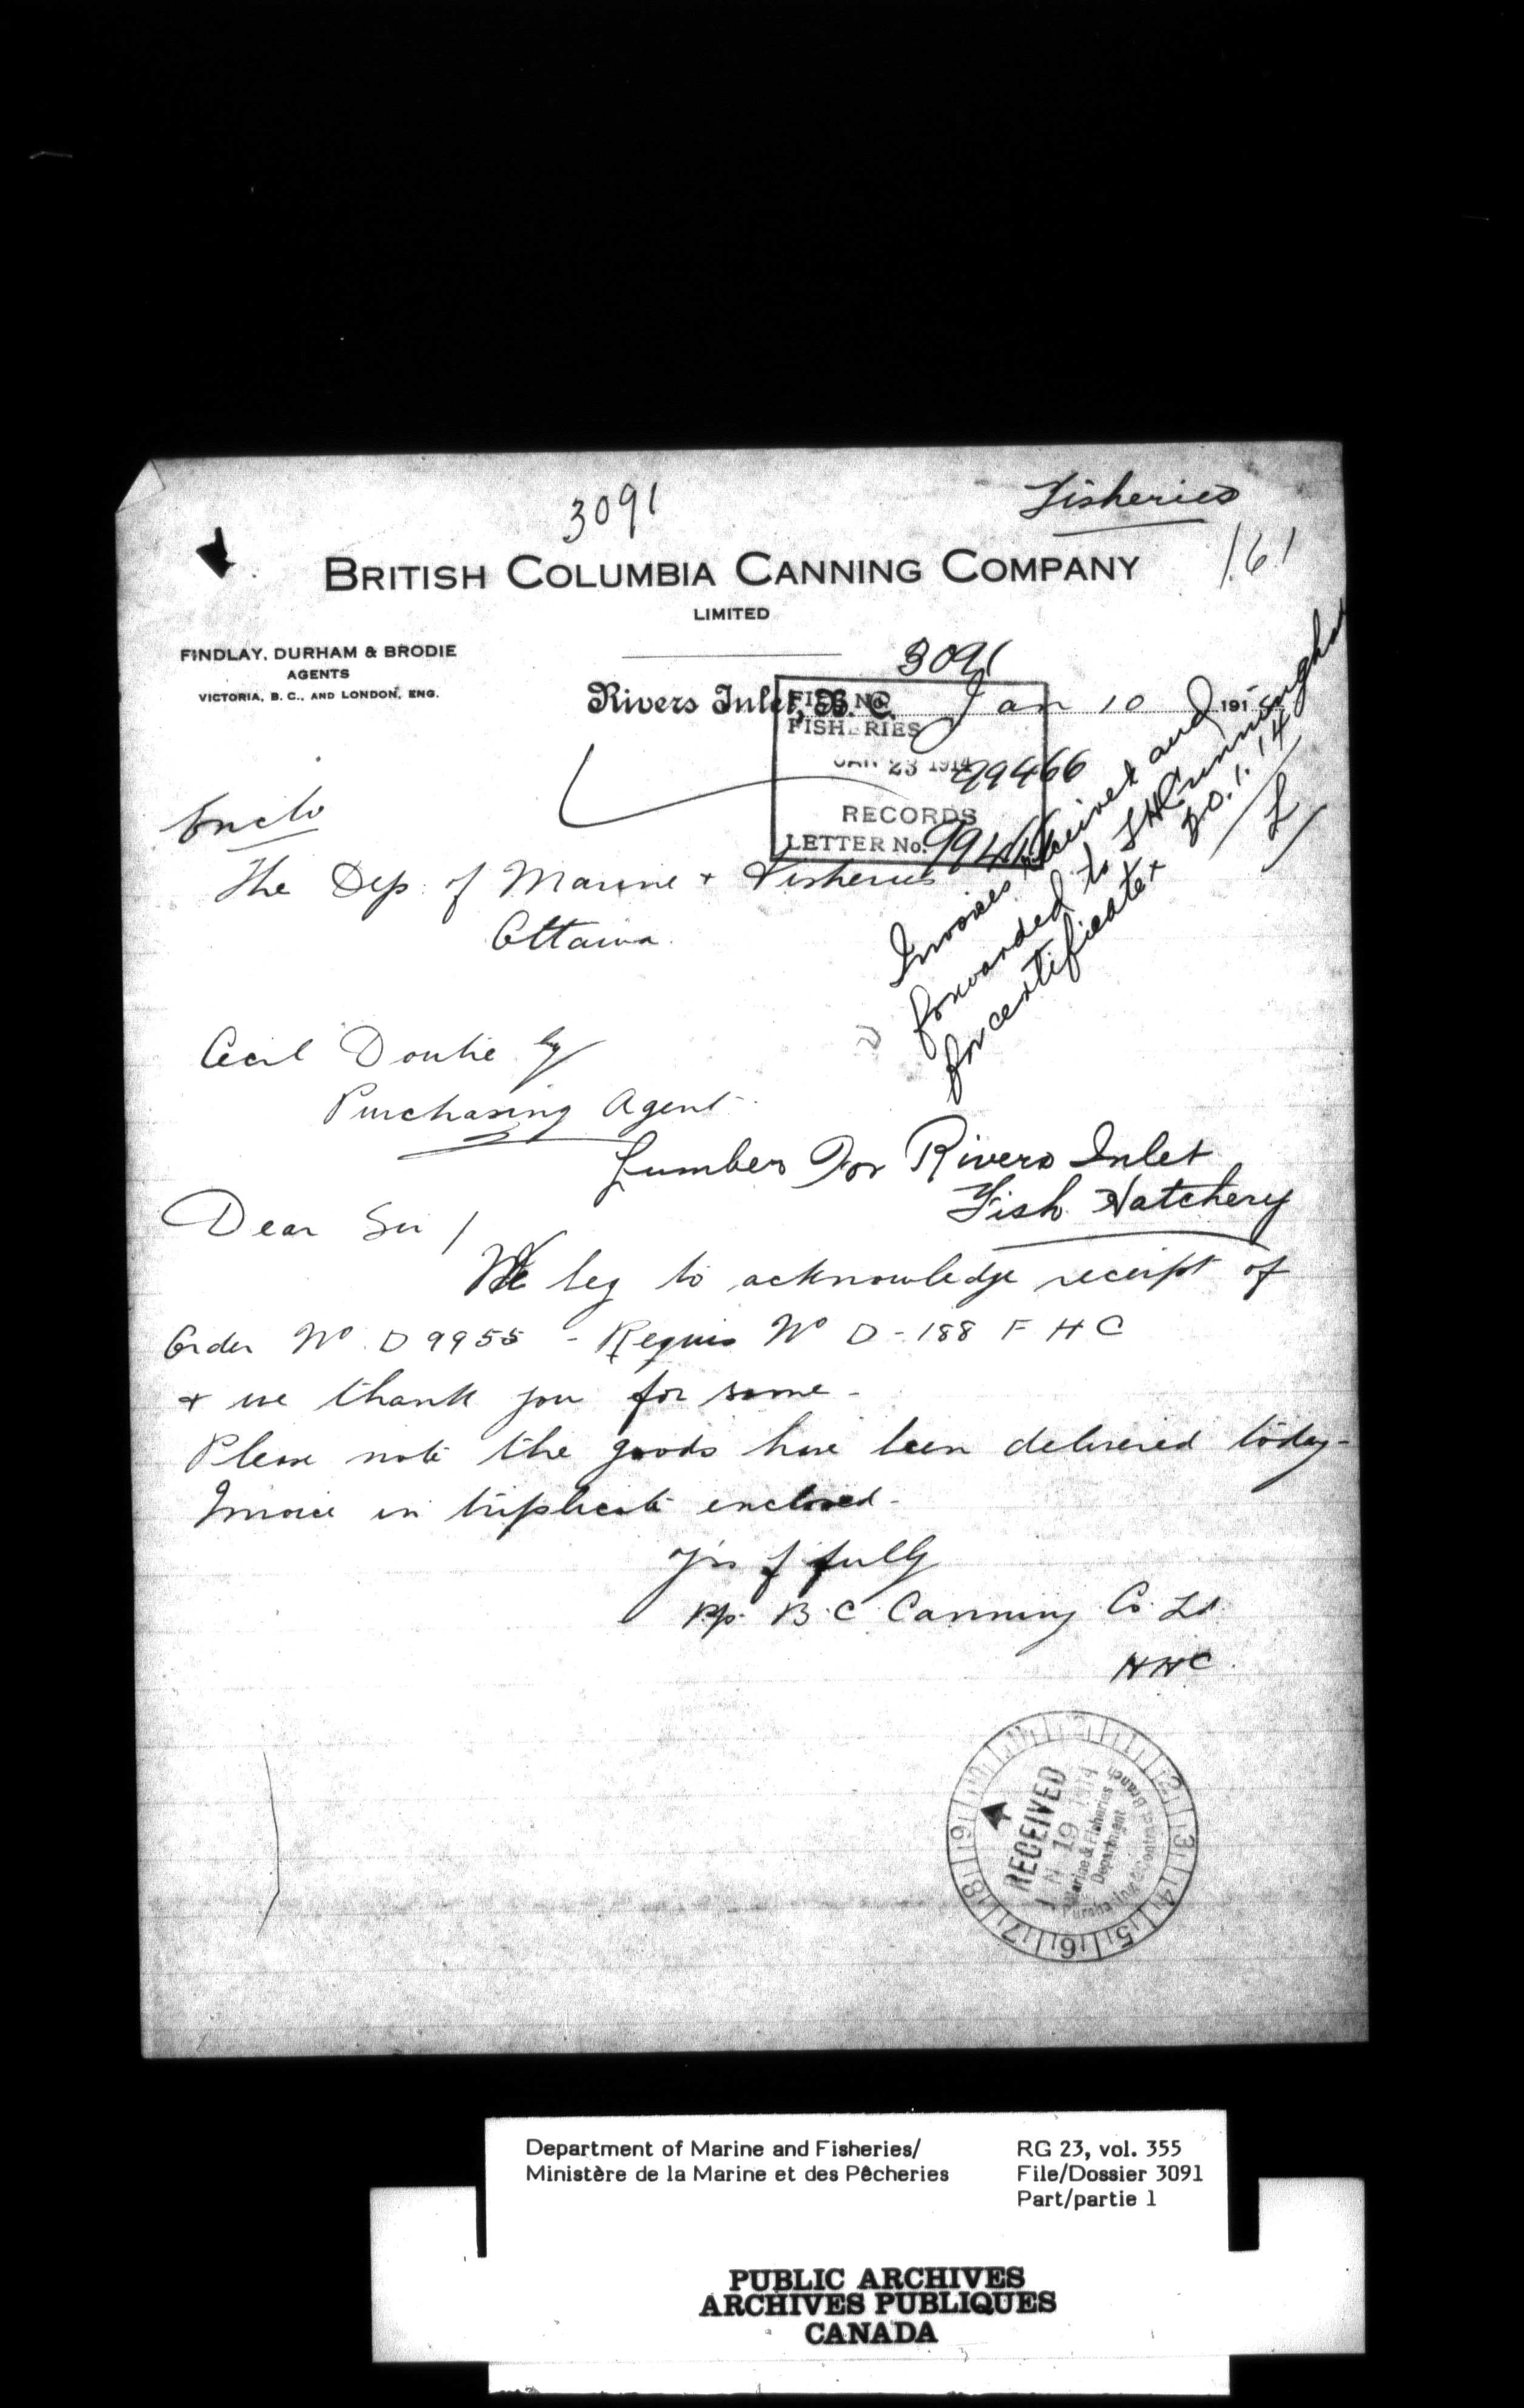 3091
Fisheries
161
BRITISH COLUMBIA CANNING COMPANY
LIMITED
FINDLAY, DURHAM & BRODIE
AGENTS
VICTORIA, B. C., AND LONDON, ENG.
3091
Rivers Inlet, B. C. Jan 10 191
FILE NO.
FISHERIES
JAN 23 1914
99466
RECORDS
LETTER No. 99466
Invoices received and
forwarded to F H Cunningham
for certificate 20.1.14
L
Enclo
The Dep. of Marine + Fisheries
Ottawa.
Cecil Doutre Esq
Purchasing Agent
Lumber For Rivers Inlet
Fish Hatchery
Dear Sir /
We beg to acknowledge receipt of
Order No. D 9955 - Requis No D-188 F H C
+ we thank you for same -
Please note the goods have been delivered today -
Invoice in triplicate enclosed -
Yrs f fully
pp. B.C. Canning Co. Ld.
HHC.
RECEIVED
JAN 19 1914
Marine & Fisheries
Department
Purchasing & Contract Branch
2 3 4 5 6 7 8 9
Department of Marine and Fisheries/
Ministère de la Marine et des Pêcheries
RG 23, vol. 355
File/Dossier 3091
Part/partie 1
PUBLIC ARCHIVES
ARCHIVES PUBLIQUES
CANADA